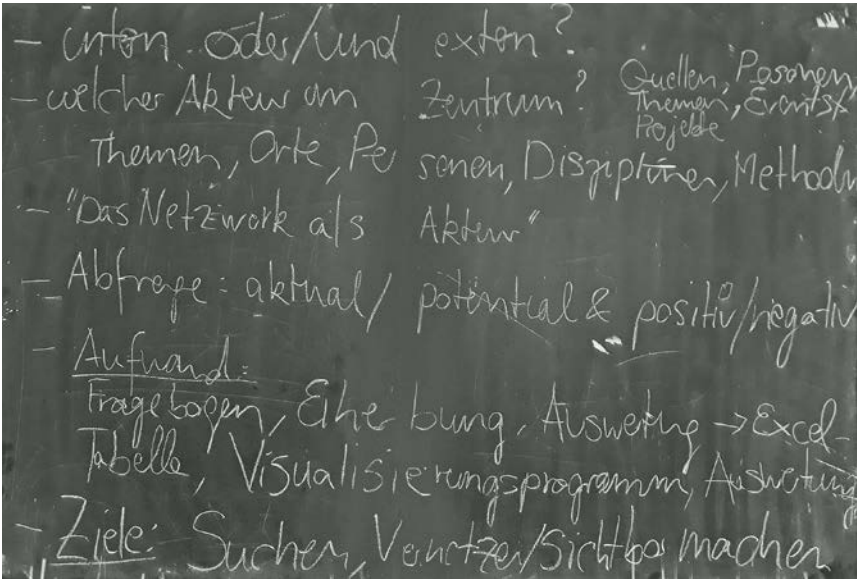 - intern oder/und extern?
- welcher Akteur im Zentrum? Quellen, Personen,
Themen, Events
Projekte
Themen, Orte, Personen, Disziplinen, Methoden
- "Das Netzwerk als Akteur"
- Abfrage: aktual/potential & positiv/negativ
- Aufwand:
Fragebogen, Erherbung, Auswertung → Excel-
Tabelle, Visualisierungsprogramm, Auswertung
- Ziele: Suchen, Vernetzen/Sichtbar machen